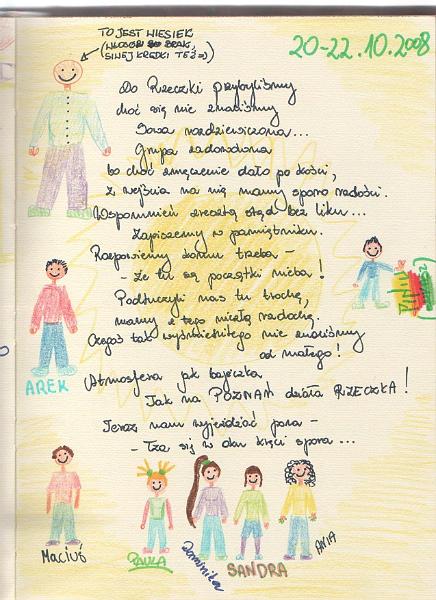 TO JEST WIESIEK
(WŁOSÓW BRAK,
SINEJ KREDKI TEŻ =)
20-22.10.2008
Do Rzeczki przybyliśmy
choć się nie znaliśmy
Sowa
Grupa zadowolona
bo choć zmęczenie dało po kości,
z wejścia na nią mamy sporo radości.
Wspomnień zresztą stąd bez liku...
Zapiszemy w pamiętniku.
Rozpowiemy komu trzeba -
- Że tu są początki nieba!
Podtuczyli nas tu trochę,
mamy z tego niezłą radochę.
Czegoś tak wyśmienitego nie znaliśmy
od małego!
Atmosfera jak bajeczka
Tak na POZNAŃ działa RZECZKA!
Teraz nam wyjeżdżać pora -
- Łza się w oku kręci spora...
AREK
Maciuś
PAULA
Dominika
SANDRA
ANIA